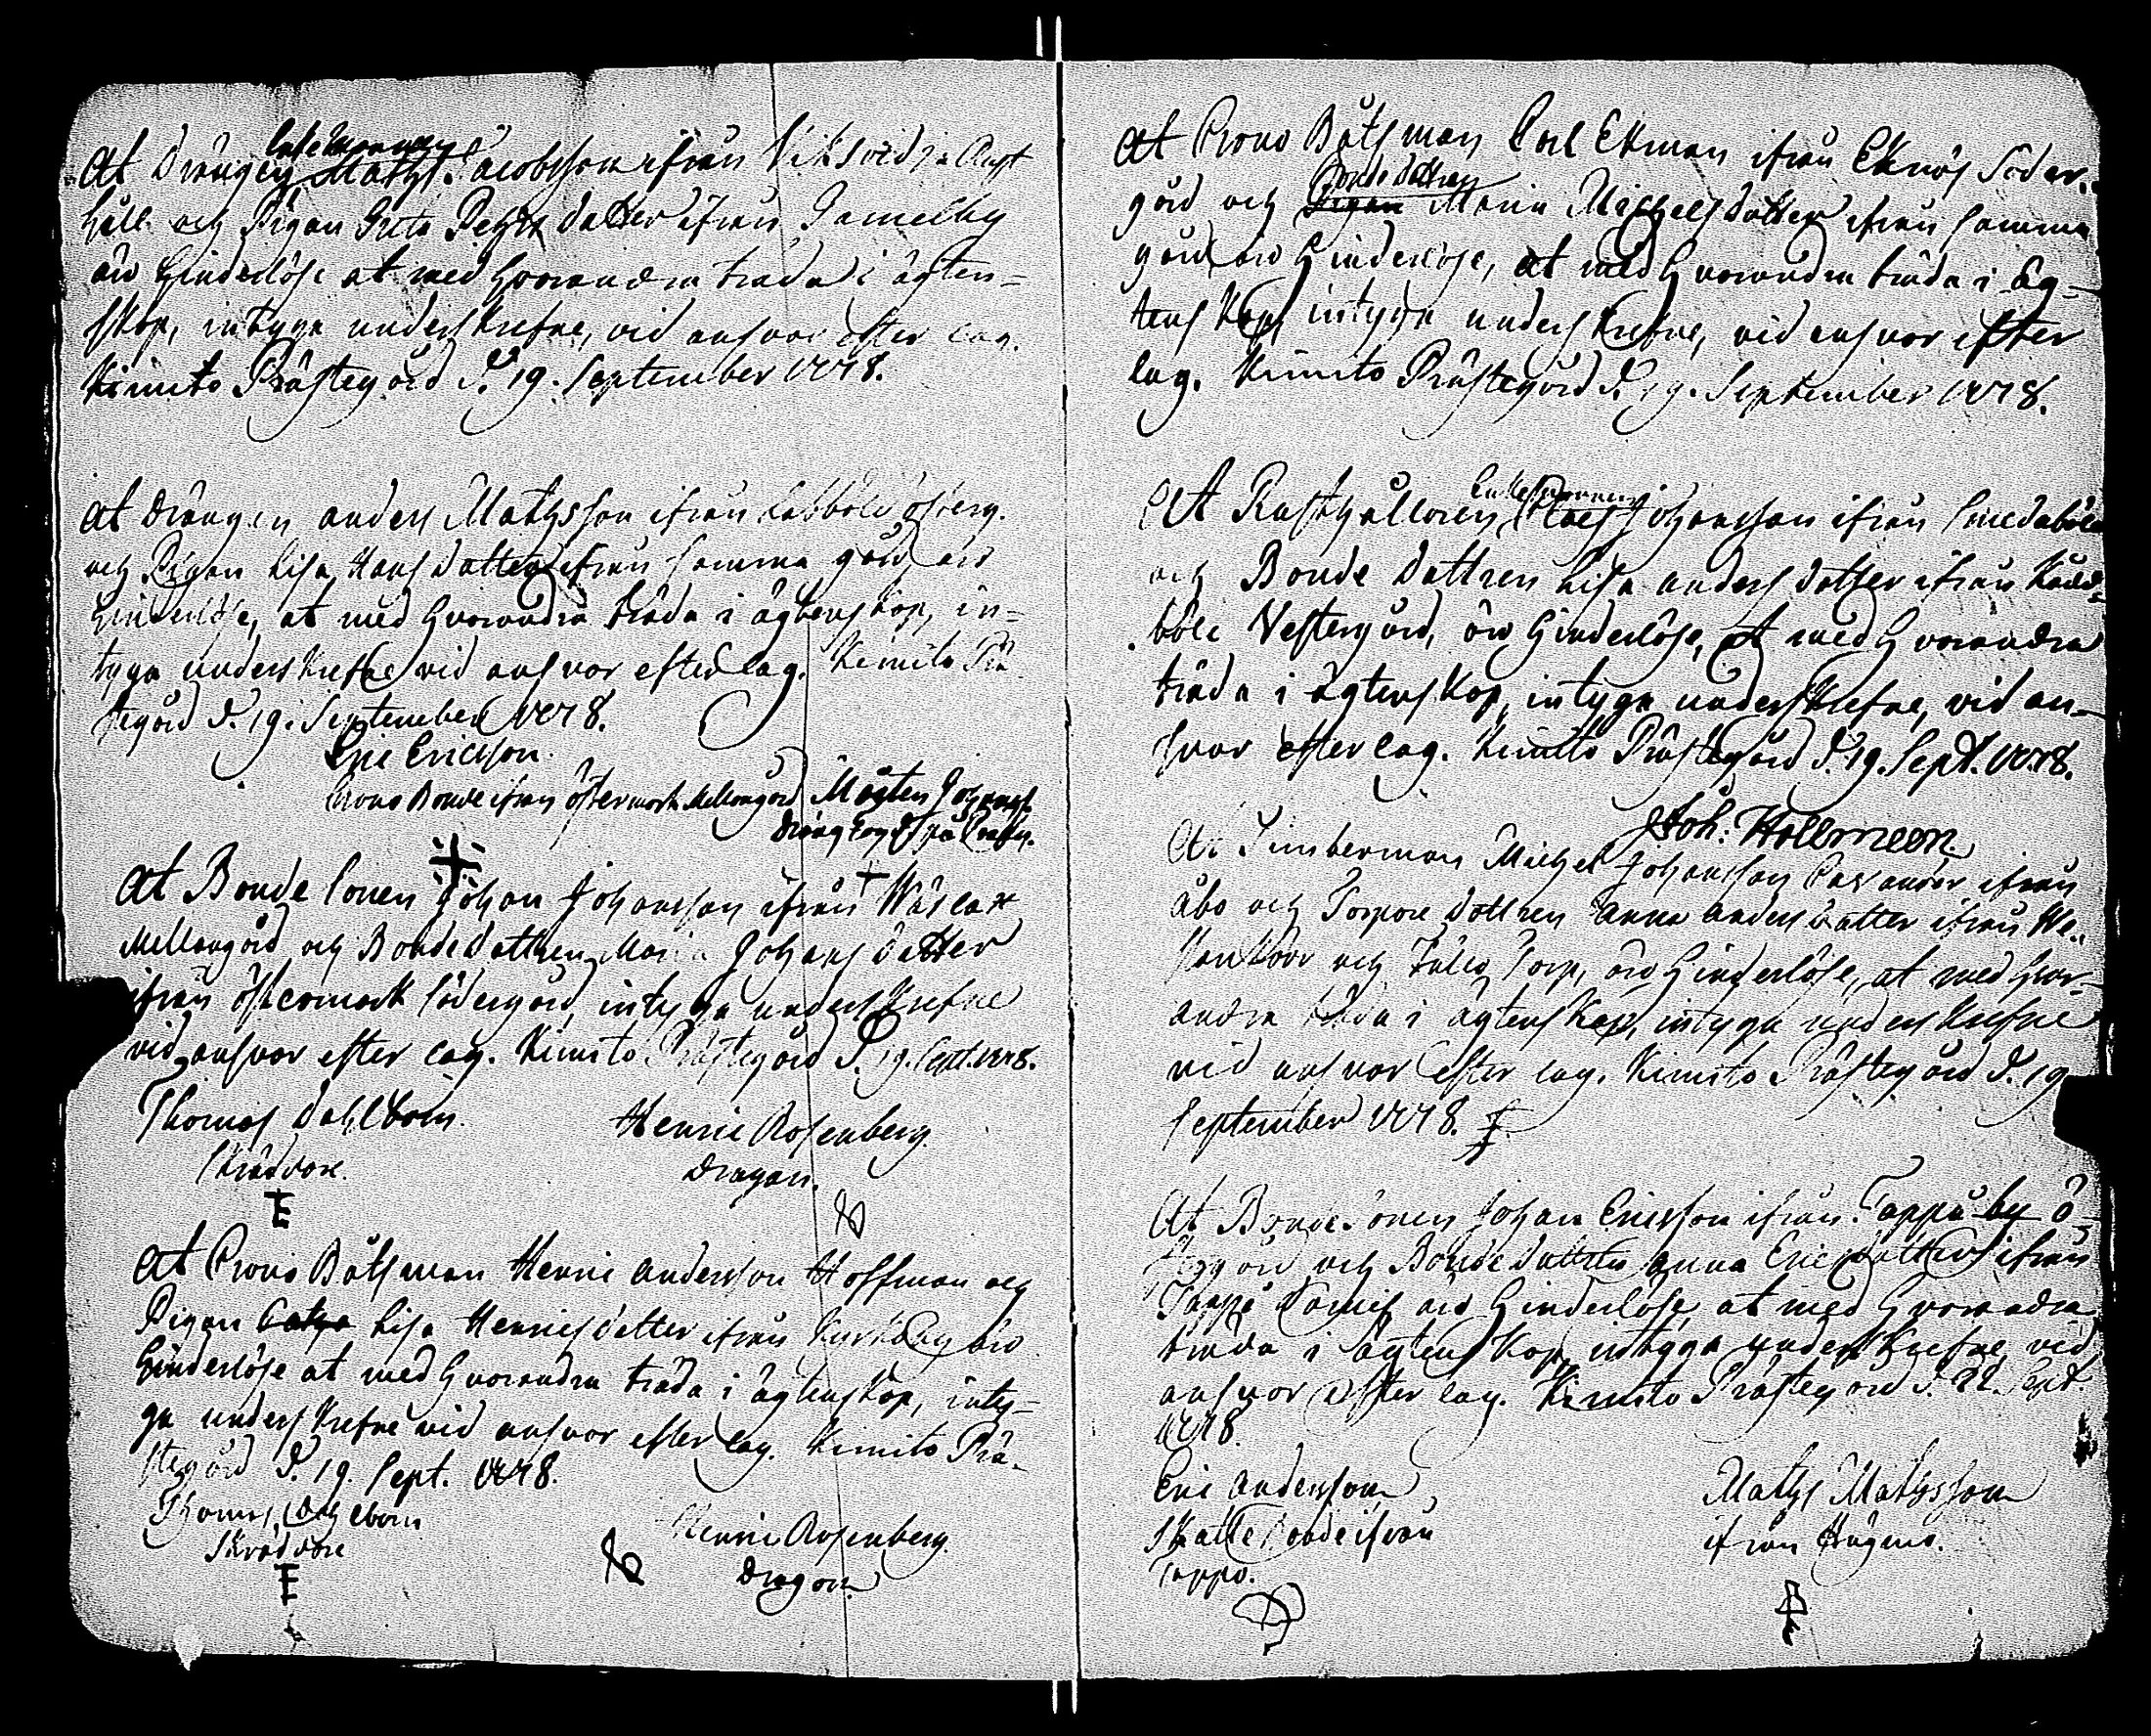 Enkemannen
At Drängen Mathz Jacobsson ifrån Viksvidja Rust
håll och Pigan Greta Pehrs dotter ifrån Gamelby
äro hinderlöse at med hvorandra träda i ägten=
skap, intyga underskrefne, vid answar efter lag.
Kimito Prästegård d. 19. September 1778.
At Drängen Anders Mathsson ifrån
och Pigan Lisa Hans dotter ifrån samma gård äro
hinderlöse, at med hvorandra träda i ägtenskap, in=
tyga underskrefne vid answar efter lag. Kimito Prä
stegård d. 19. September 1778.
Eric Ericsson.
Crono Bonde ifrån Östermark Mellangård Mårten Johanss.
At Bonde Sonen Johan Johansson ifrån Wåslax
Mellangård och Bonde dottren Maria Johans dotter
ifrån Östermark Södergård, intyga underskrefne
vid answar efter lag. Kimito Prästegård d. 19. Sept. 1778.
Thomas Dahlbom. Henric Rosenberg.
Skräddare. Dragon.
At Crono Båtsman Henric Andersson Hoffman och
Pigan Catza Lisa Henrics dotter ifrån äro
hinderlöse at med hvorandra träda i ägtenskap, inty=
ga underskrefne vid answar efter lag. Kimito Prä-
stegård d. 19. Sept. 1778.
Thomas Dahlbom Henric Rosenberg.
Skräddare Dragon.
At Crono Båtsman Carl Ekman ifrån Eknäs Söder-
Bonde dottren
gård och Pigan Maria Michels dotter ifrån samma
gård äro hinderlöse, at med hvorandra träda i äg-
tenskap, intyga underskrefne, vid answar efter
lag. Kimito Prästegård d. 19. September 1778.
Enkemannen
At Rusthållaren Claes Johansson ifrån Smedaböle
och Bonde dottren Lisa Anders dotter ifrån
böle Vestergård, äro hinderlöse, at med hvorandra
träda i ägtenskap, intyga underskrefne, vid an-
svar efter lag. Kimito Prästegård d. 19. Sept. 1778.
Joh: Hollmeen
At Timberman Michel Johansson ifrån
Åbo och Torpare dottren Anna Anders dotter ifrån
och Torp, äro hinderlöse, at med hvor-
andra träda i ägtenskap, intyga underskrefne
vid answar efter lag. Kimito Prästegård d. 19
September 1778.
At Bonde Sonen Johan Ericsson ifrån Tappo by Ö-
stergård och Bonde dottren Anna Erics dotter ifrån
Tappo äro hinderlöse, at med hvorandra
träda i ägtenskap, intyga underskrefne vid
answar efter lag. Kimito Prästegård d. 22. Sept.
1778.
Eric Andersson Mathz Mathsson
Skatte Bonde ifrån ifrån
Tappo.